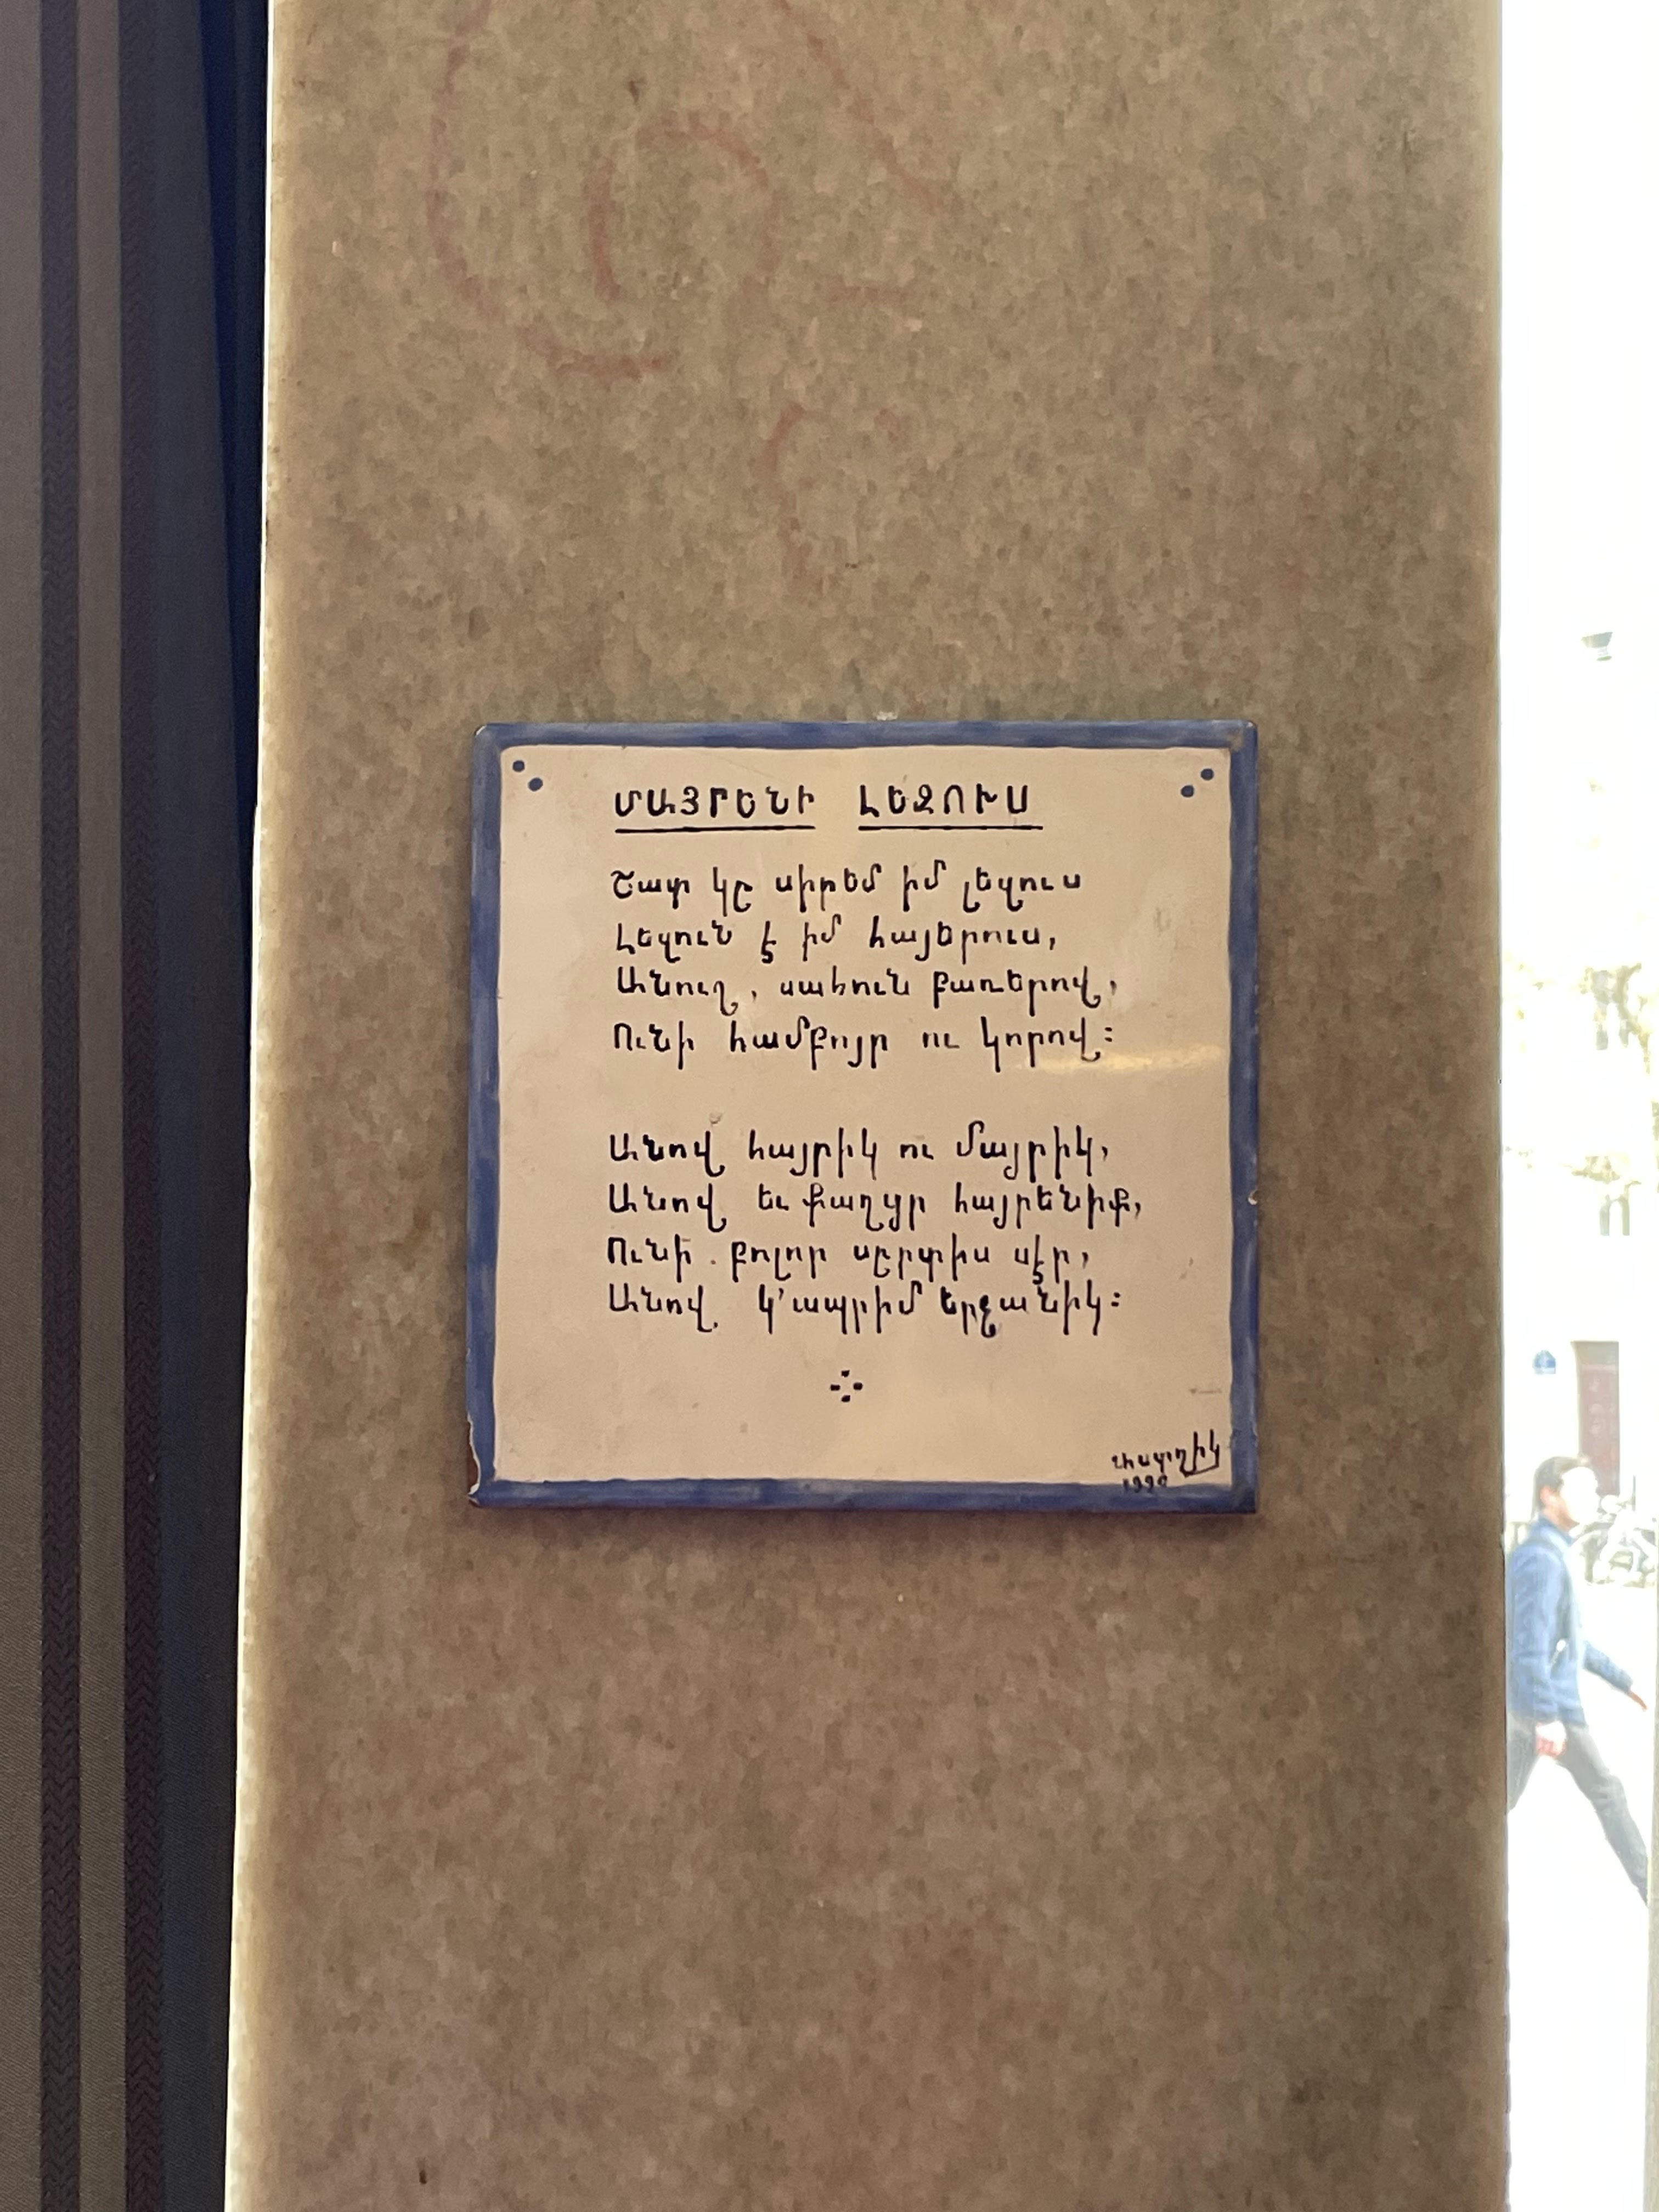 ՄԱՅՐԵՆԻ ԼԵԶՈՒՍ
Շատ կը սիրեմ իմ լեզուս
Լեզուն է իմ հայերուս,
Անուշ, սահուն բառերով,
Ունի համբոյր ու կորով։
Անով հայրիկ ու մայրիկ,
Անով եւ քաղցր հայրենիք,
Ունի բոլոր սըրտիս սէր,
Անով կ'ապրիմ երջանիկ։